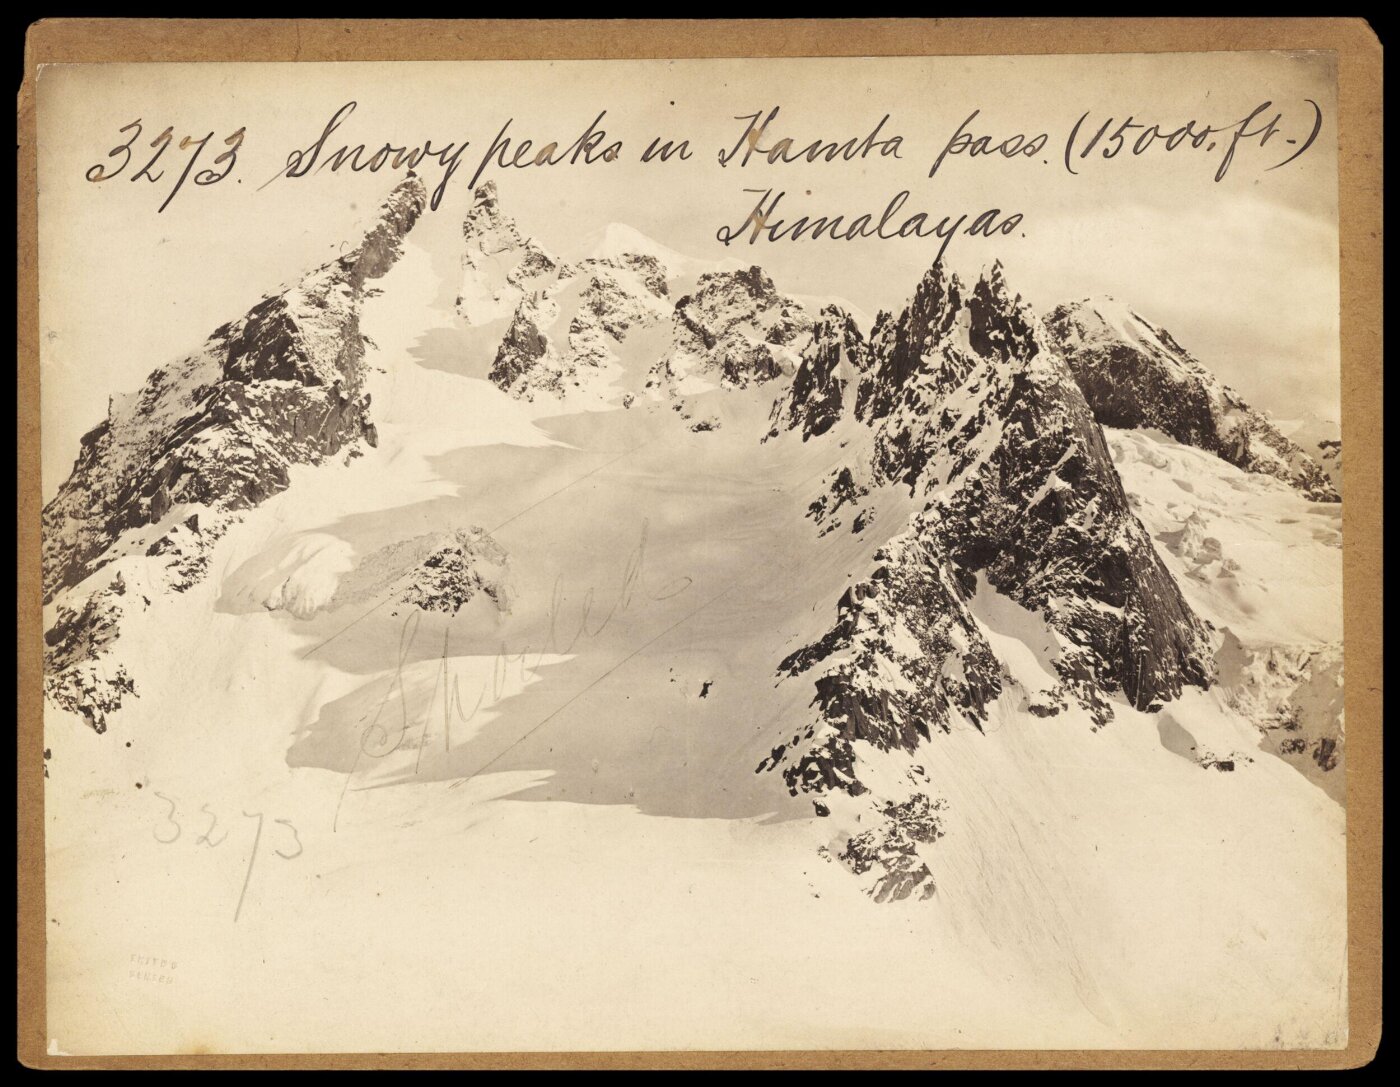 3273. Snowy peaks in Hamta pass. (15000.ft.)
Himalayas.
3273
FRITH'S
SERIES